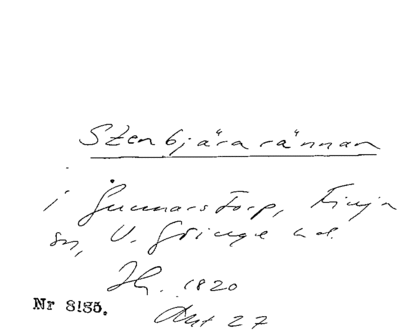 Stenbjära rännan
i Gunnarstorp, Finja
sn, V. Göinge hd.
1820
Nr 8135.
27